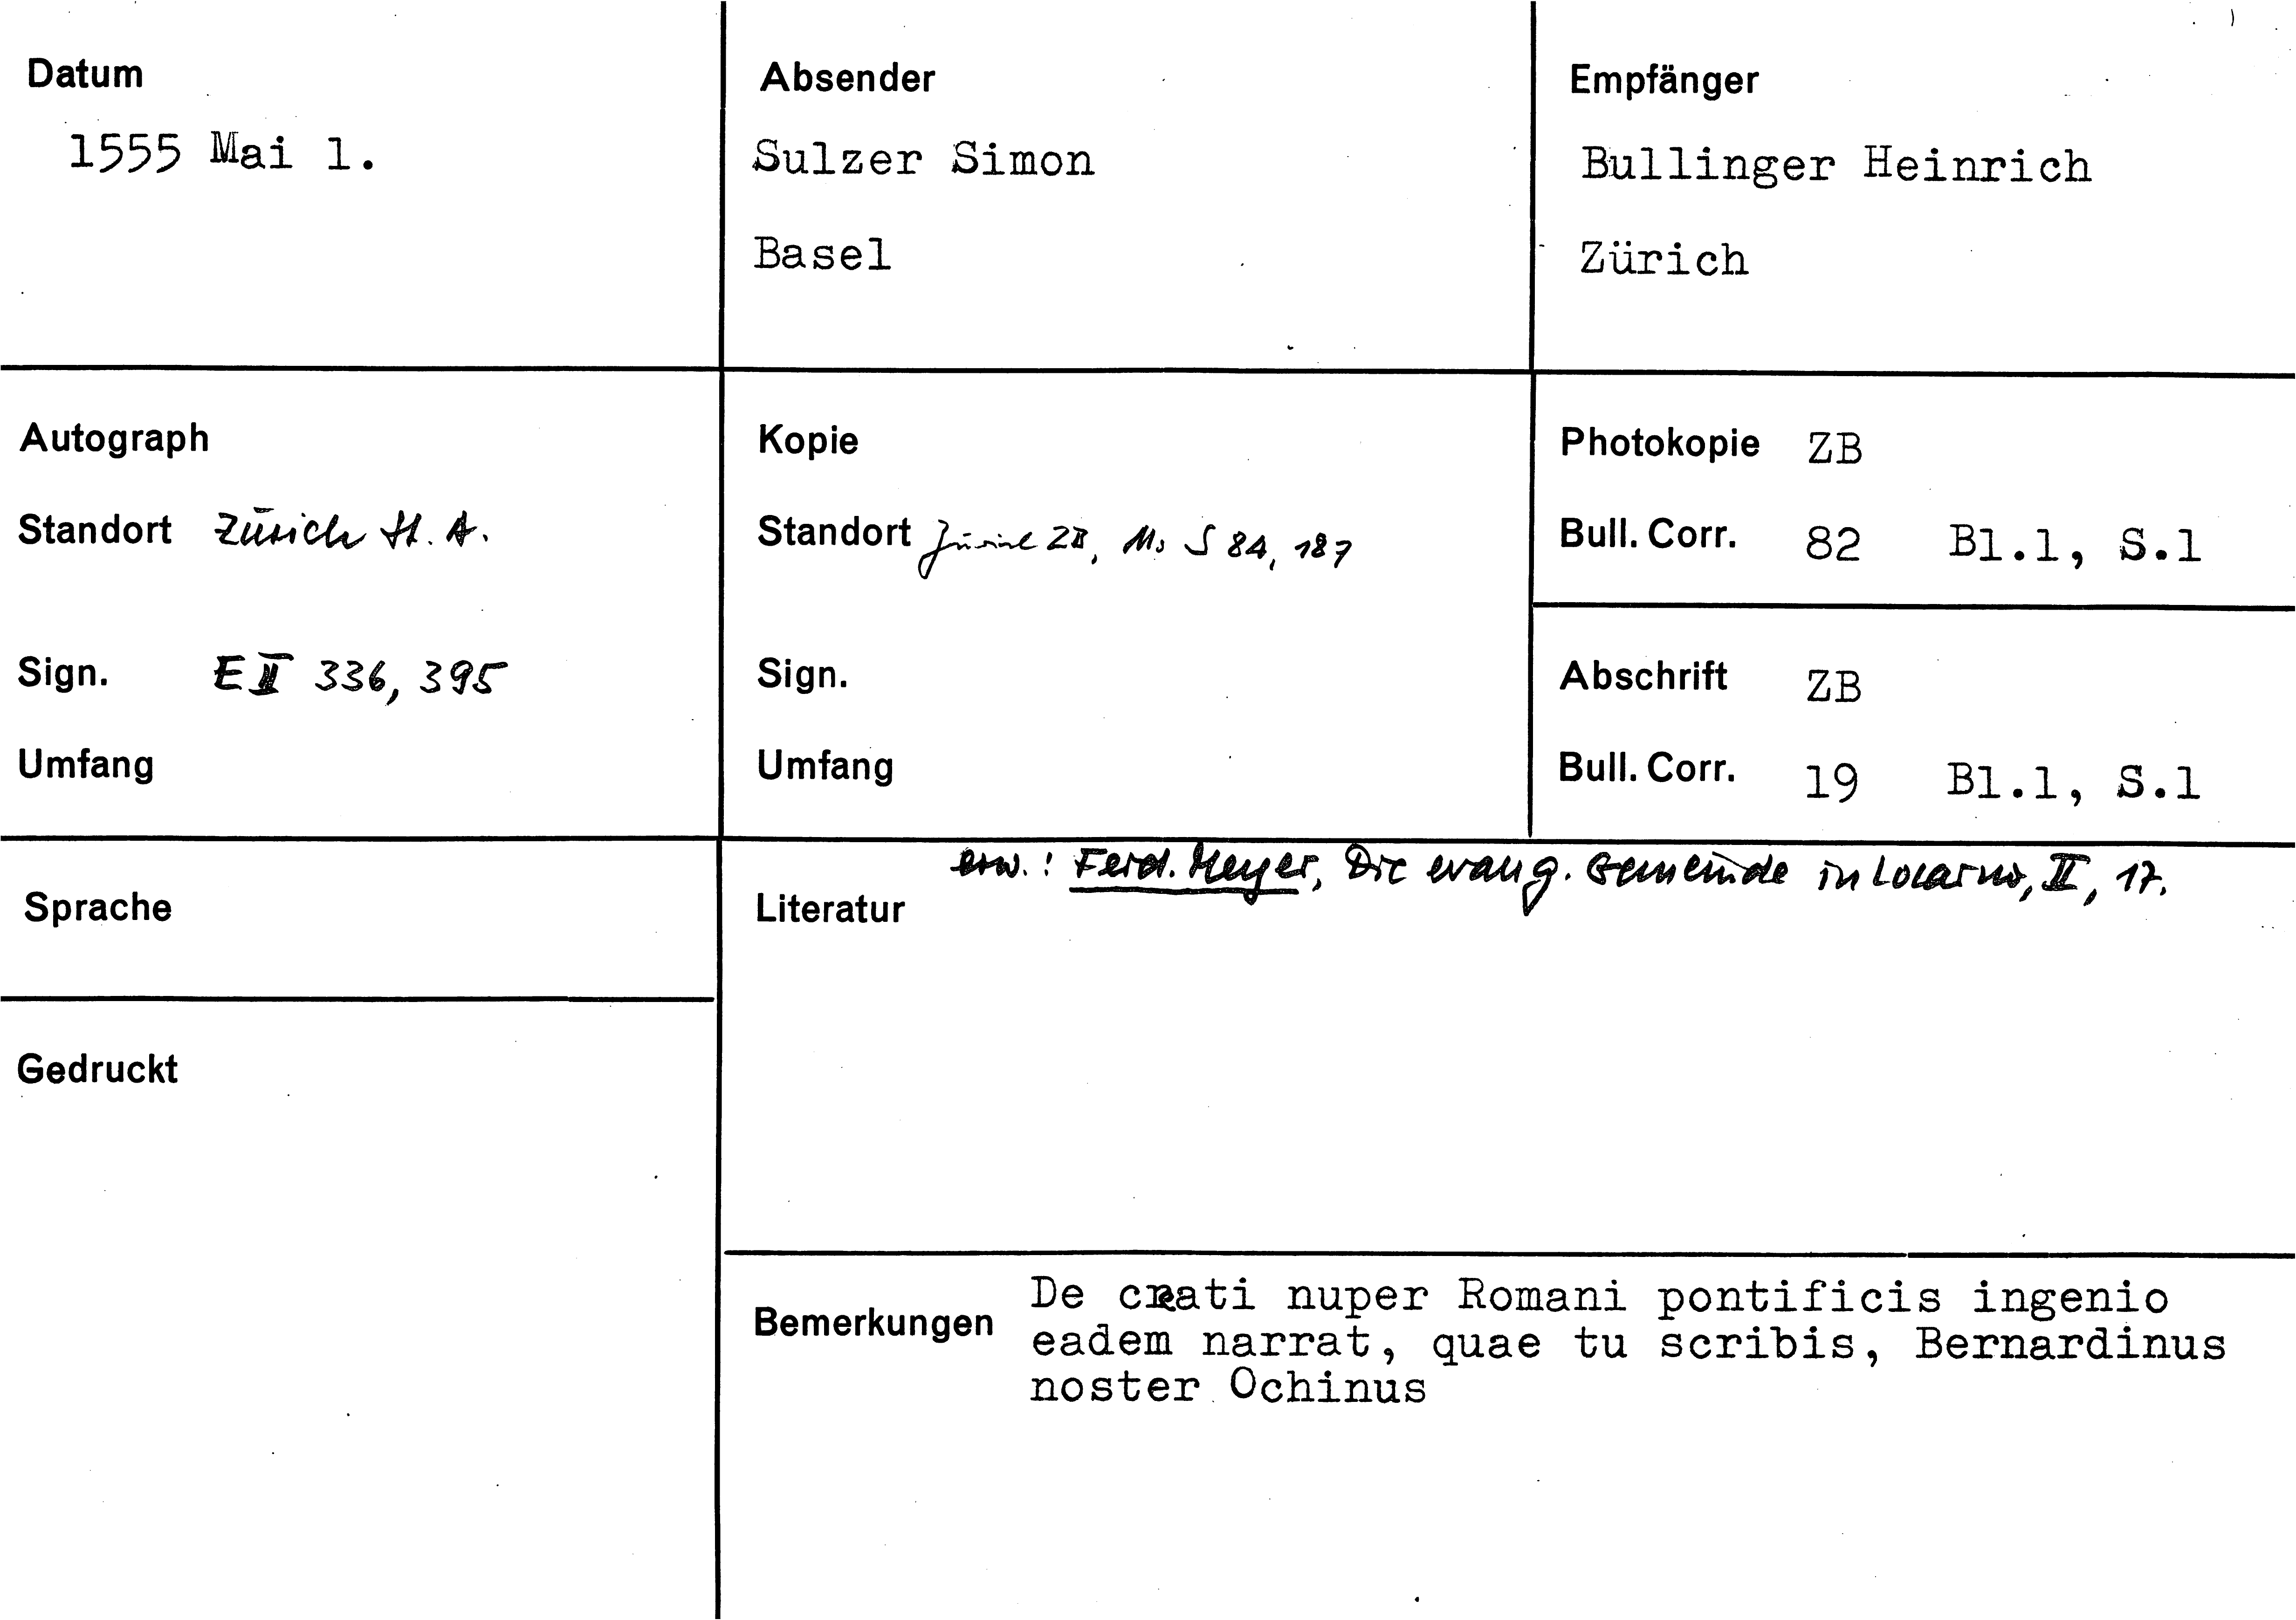 Datum
1555 Mai 1.
Absender
Sulzer Simon
Basel
Empfänger
Bullinger Heinrich
Zürich
Autograph
Standort Zürich St. A.
Sign. E II 336, 395
Umfang
Kopie
Standort Zürich ZB, Ms S 84, 187
Sign.
Umfang
Photokopie ZB
Bull. Corr. 82 Bl.1, S.1
Abschrift ZB
Bull. Corr. 19 Bl.1, S.1
Sprache
Gedruckt
erw.: Ferd. Meyer, Die evang. Gemeinde in Locarno, II, 17.
Literatur
Bemerkungen
De creati nuper Romani pontificis ingenio
eadem narrat, quae tu scribis, Bernardinus
noster Ochinus